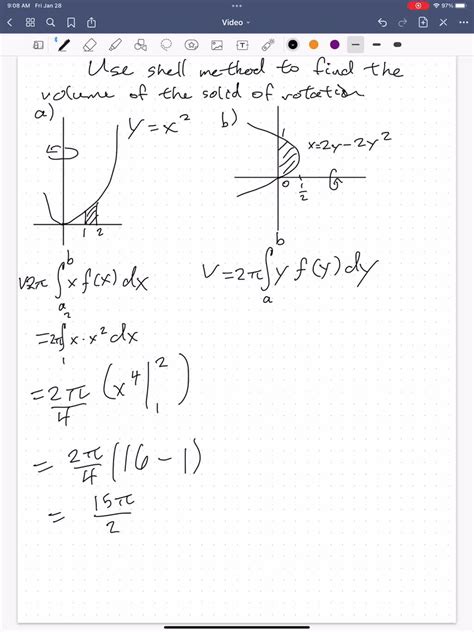 9:08 AM Fri Jan 28
97%
Video
Use shell method to find the
volume of the solid of rotation
a)
y = x²
1 2
b)
1
x=2y-2y²
0 1/2
V=2π ∫_a^b x f(x) dx
= 2π ∫_1^2 x·x² dx
= 2π/4 (x⁴|_1^2)
= 2π/4 (16 - 1)
= 15π/2
V = 2π ∫_a^b y f(y) dy